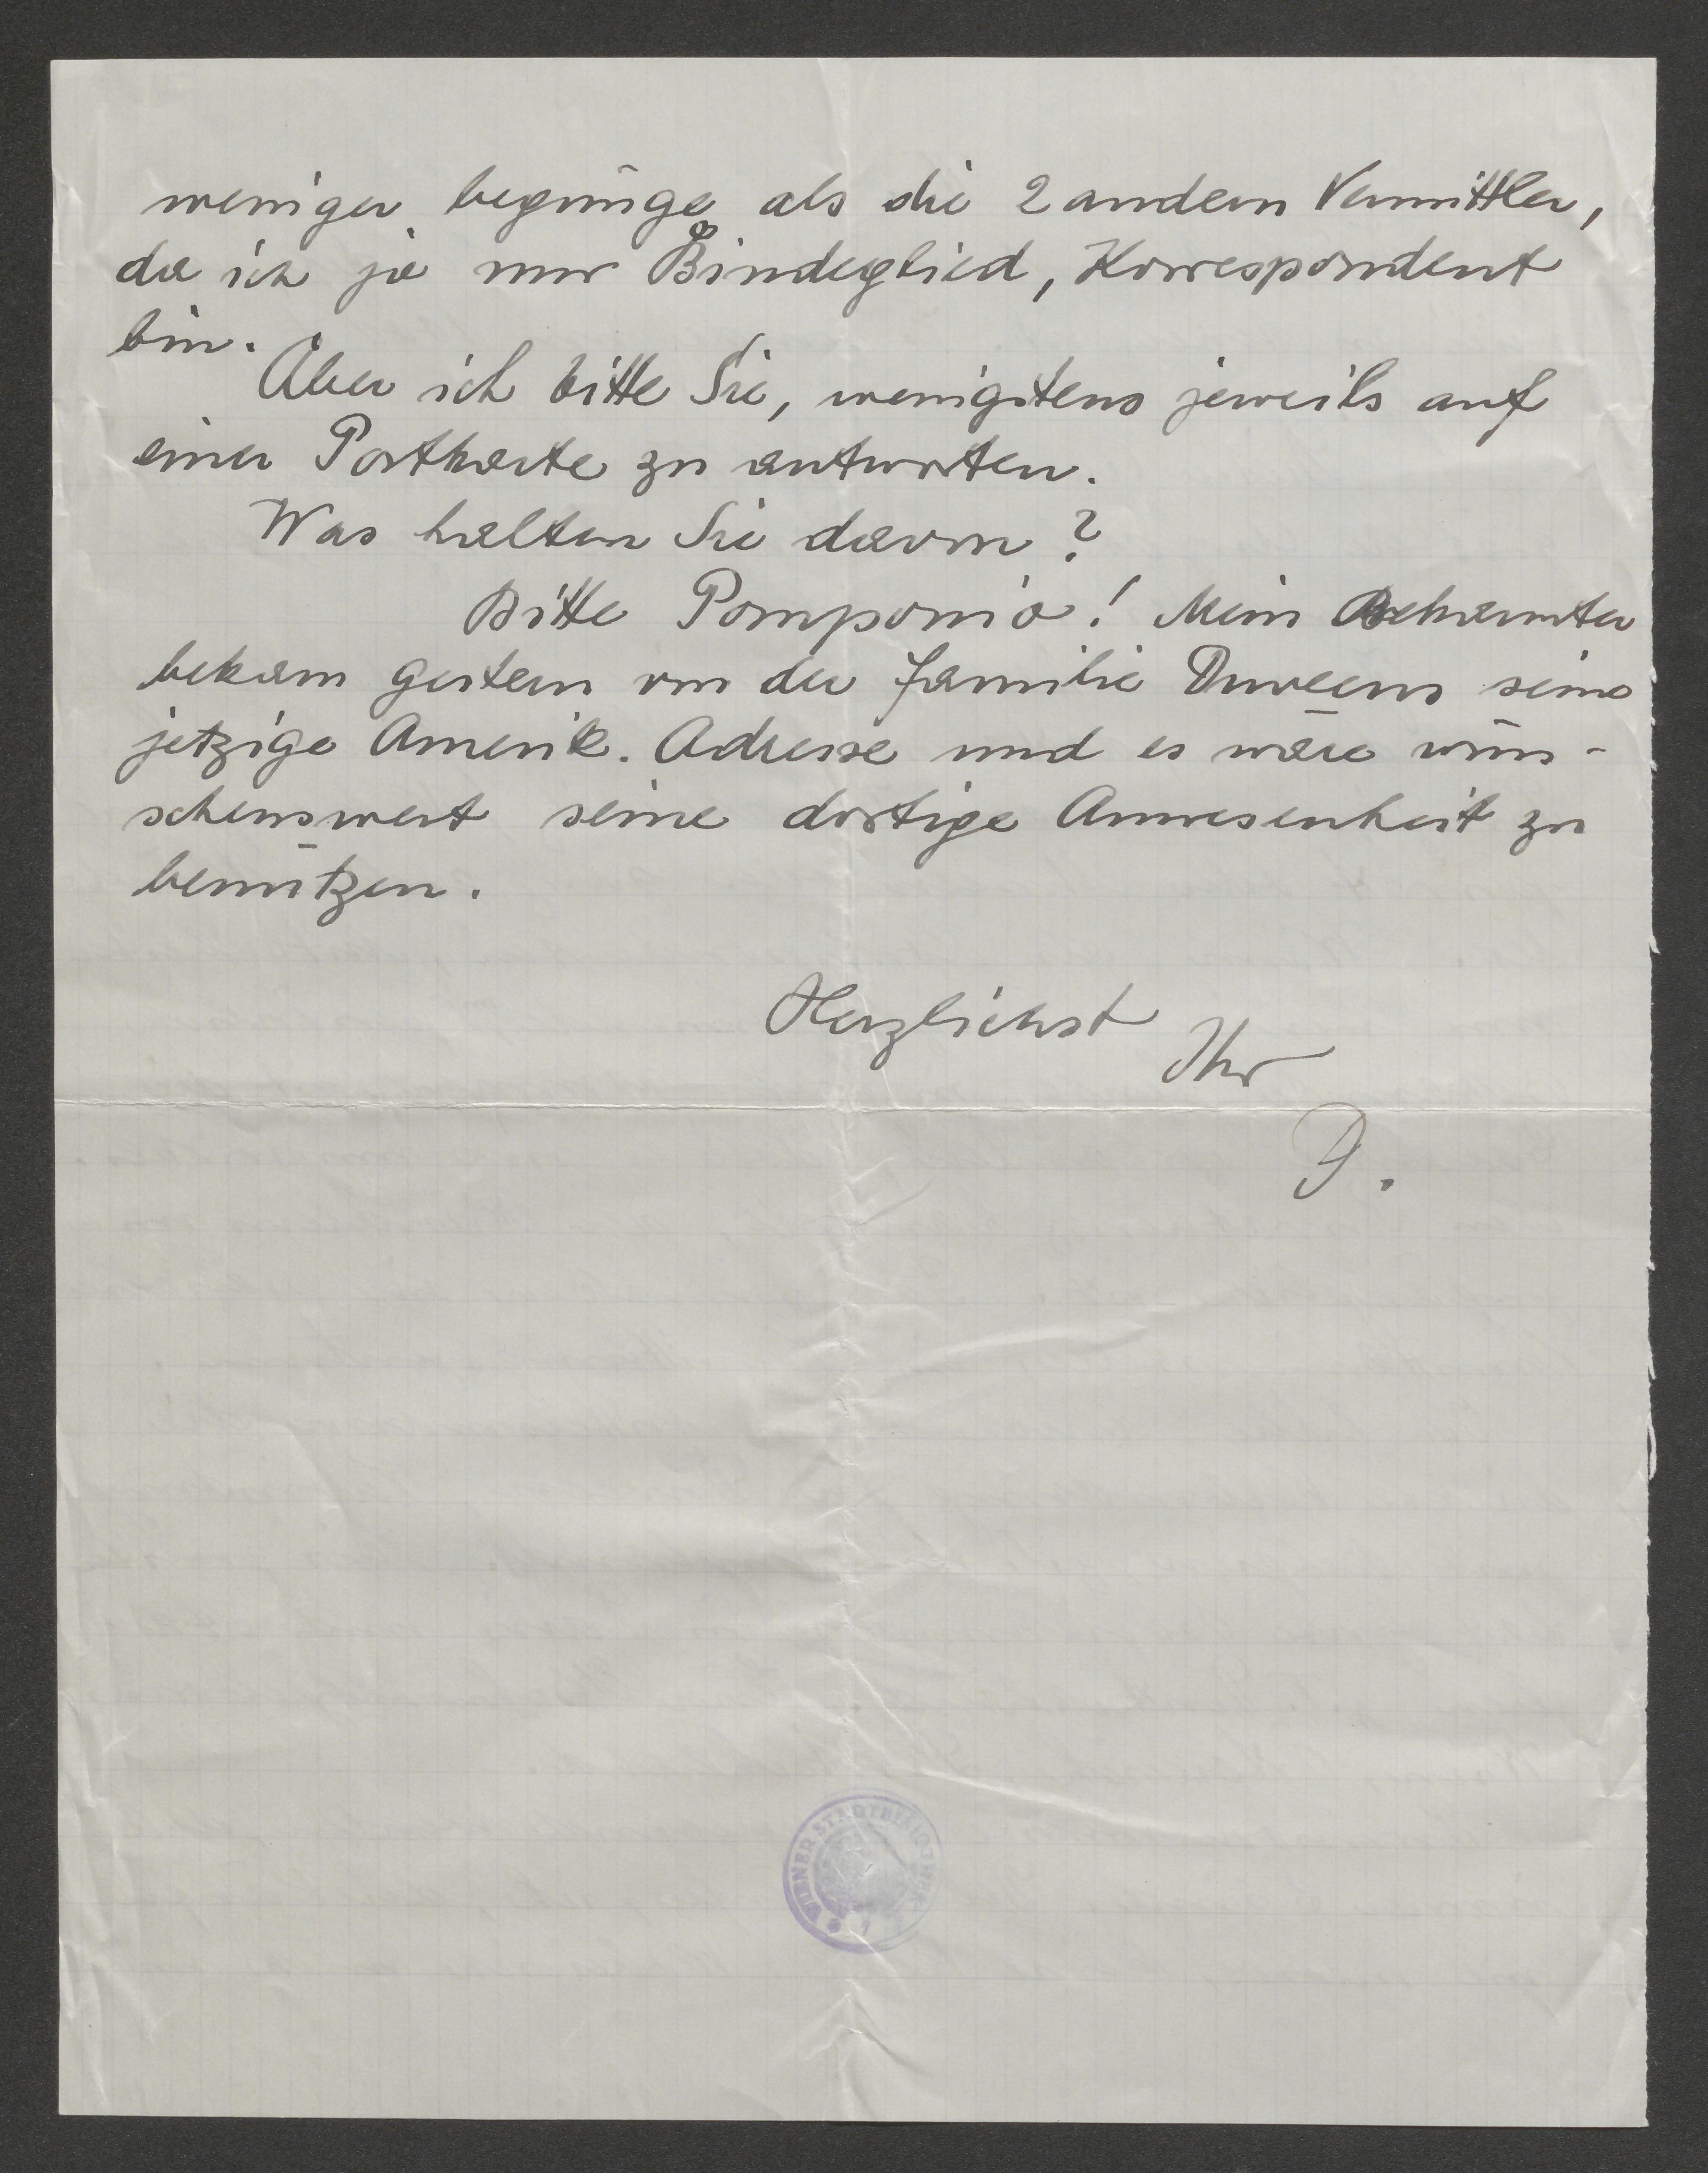 weniger begnüge als die 2 andern Vermittler,
da ich ja nur Bindeglied, Korrespondent
bin.
Aber ich bitte Sie, wenigstens jeweils auf
einer Postkarte zu antworten.
Was halten Sie davon?
Bitte Pomponio! Mein Bekannter
bekam gestern von der Familie Duveens seine
jetzige Amerik. Adresse und es wäre wün-
schenswert seine dortige Anwesenheit zu
benützen.
Herzlichst
Ihr
P.
WIENER STADTBIBLIOTHEK